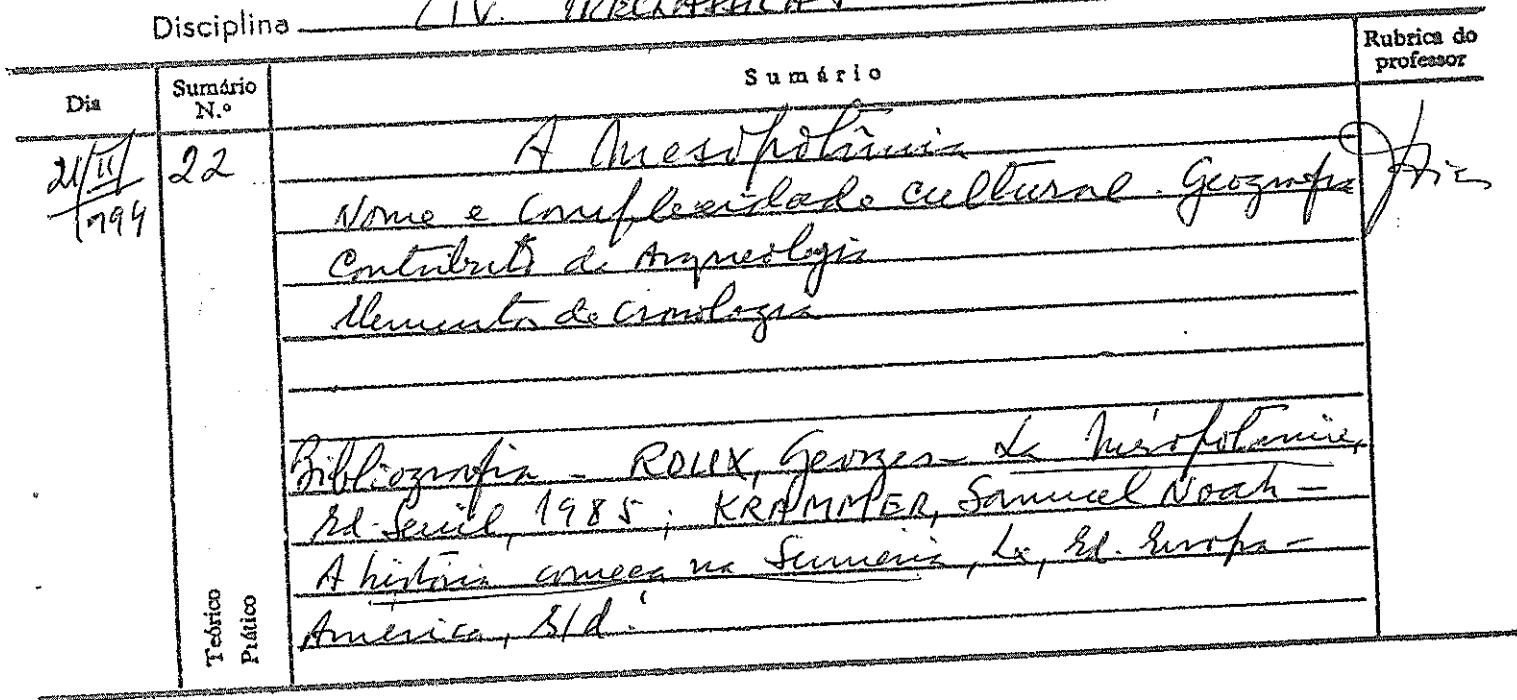 Disciplina CIV. PRÉCLÁSSICAS
Dia
Sumário N.º
Sumário
Rubrica do professor
21/II/1994
22
A Mesopotâmia
Nome e complexidade cultural. Geografia
Contributo da Arqueologia
Elementos de cronologia
Bibliografia - ROUX, Georges - La Mésopotamie,
Ed. Seuil, 1985; KRAMMER, Samuel Noah -
A história começa na Suméria, Lx, Ed. Europa-
América, S/d.
Teórico
Prático